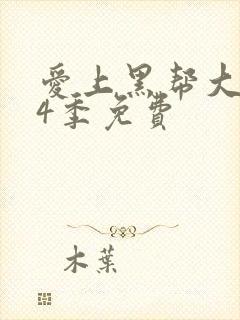 愛上黑帮大
4季免費
木葉